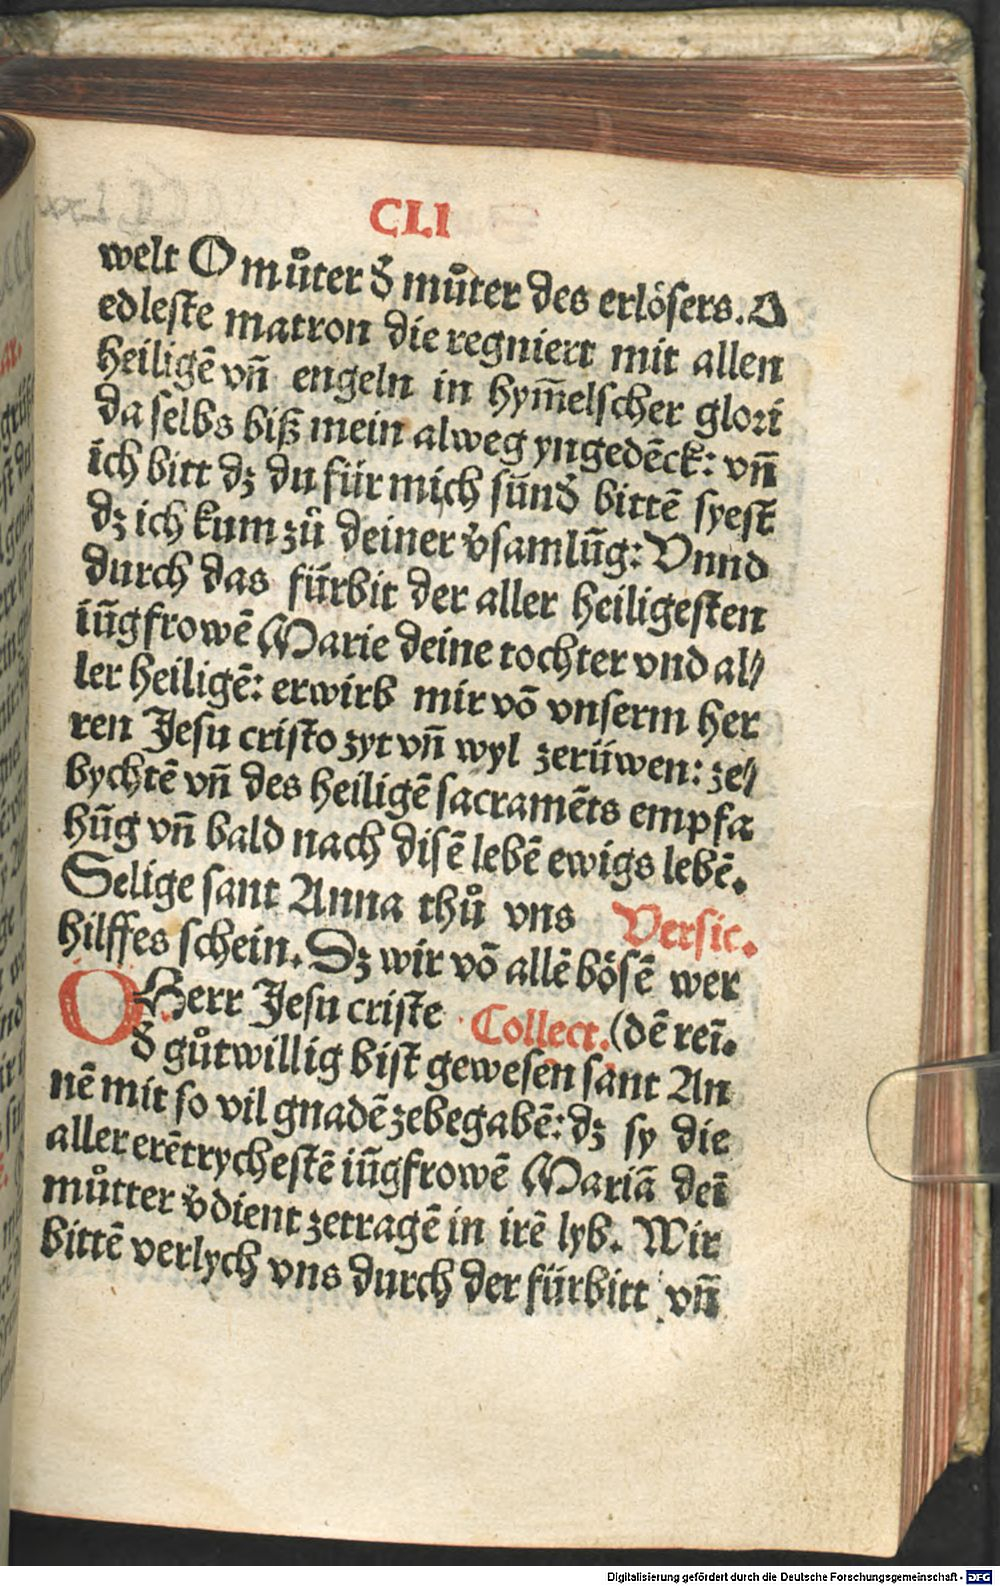 CLI
welt O můter d̕ můter des erlösers. O
edleste matron die regniert mit allen
heiligē vn̄ engeln in hym̄elscher glori
da selbs biß mein alweg yngedēck: vn̄
ich bitt dz du für mich sünd̕ bittē syest
dz ich kum zů deiner v̕samlūg: Vnnd
durch das fürbit der aller heiligesten
iūgfrowē Marie deine tochter vnd al⸗
ler heiligē: erwirb mir vō vnserm her
ren Jesu cristo zyt vn̄ wyl zerüwen: ze⸗
bychtē vn̄ des heiligē sacramēts empfa
hūg vn̄ bald nach disē lebē ewigs lebē.
Selige sant Anna thů vns Versic.
hilffes schein. Dz wir vō allē bösē wer
O Herr Jesu criste Collect. (dē rei̅.
d̕ gůtwillig bist gewesen sant An
nē mit so vil gnadē zebegabē: dz sy die
aller erētrychestē iūgfrowē Mariā dei̅
můtter v̕dient zetragē in irē lyb. Wir
bittē verlych vns durch der fürbitt vn̄
Digitalisierung gefördert durch die Deutsche Forschungsgemeinschaft - DFG